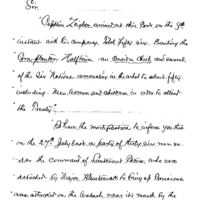 Sir.
"Captain Zeigler arrived at this Post on the 9th
instant with his company, total fifty six. Escorting the
Cornplanter, Halftown, an Oneida Chief and several
of the Six Nations, amounting in the whole to about fifty
including Men, women and children in order to attend
the Treaty."
I have the mortification to inform you that
on the 27th July last, a party of thirty six men un-
der the command of Lieutenant Peters, who were
detached by Major Hamtramck to bring up Provisions
were attacked on the Wabash near its mouth by the